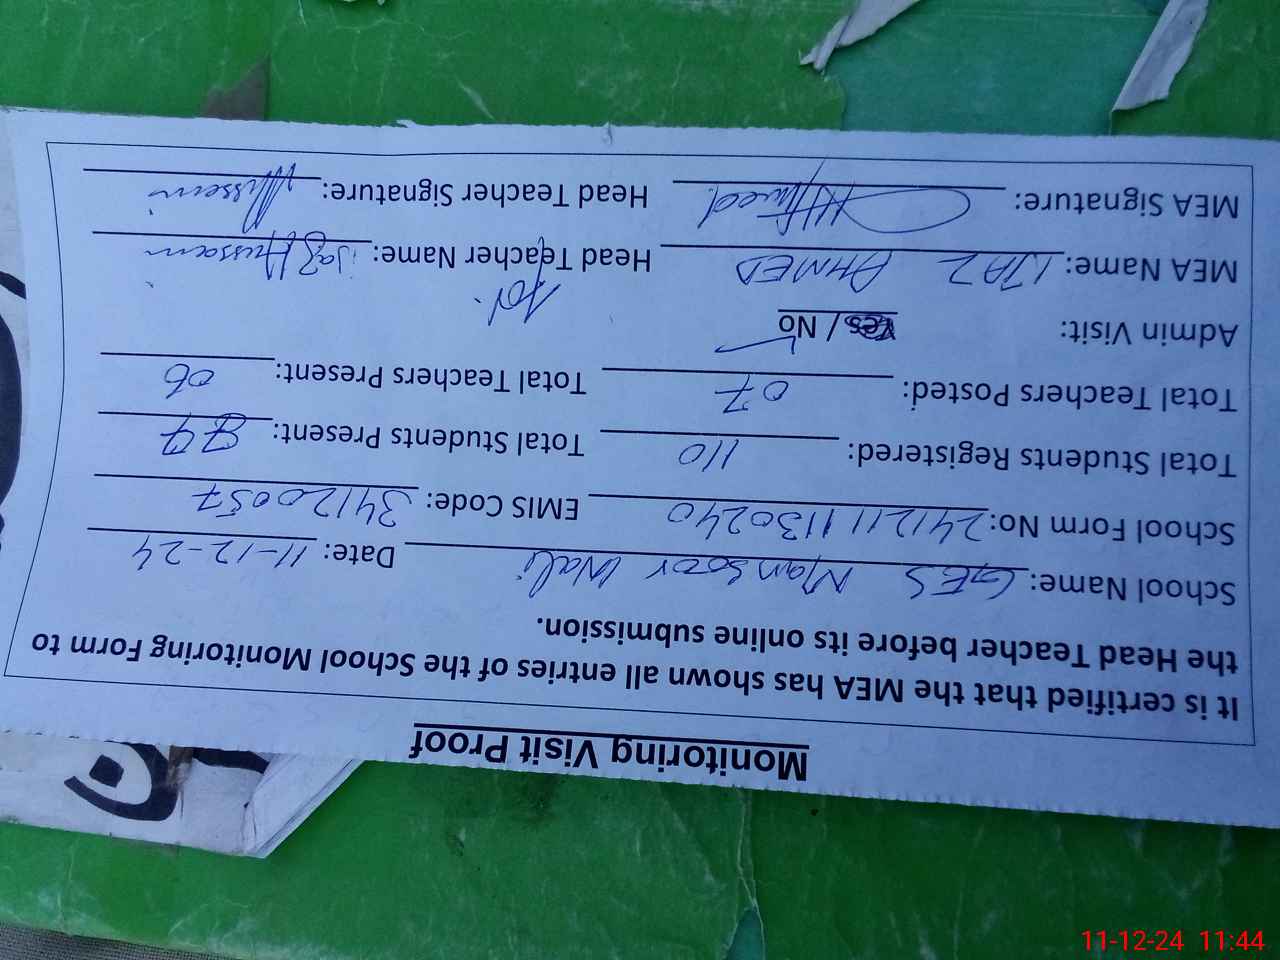 Monitoring Visit Proof
It is certified that the MEA has shown all entries of the School Monitoring Form to
the Head Teacher before its online submission.
School Name: GES Mansoor Wali Date: 11-12-24
School Form No: 2412111130240 EMIS Code: 34120057
Total Students Registered: 110 Total Students Present:
Total Teachers Posted: 07 Total Teachers Present: 06
Admin Visit: Yes / No
MEA Name: IJAZ AHMED Head Teacher Name: Hussain
MEA Signature: Head Teacher Signature: Hussain
11-12-24 11:44